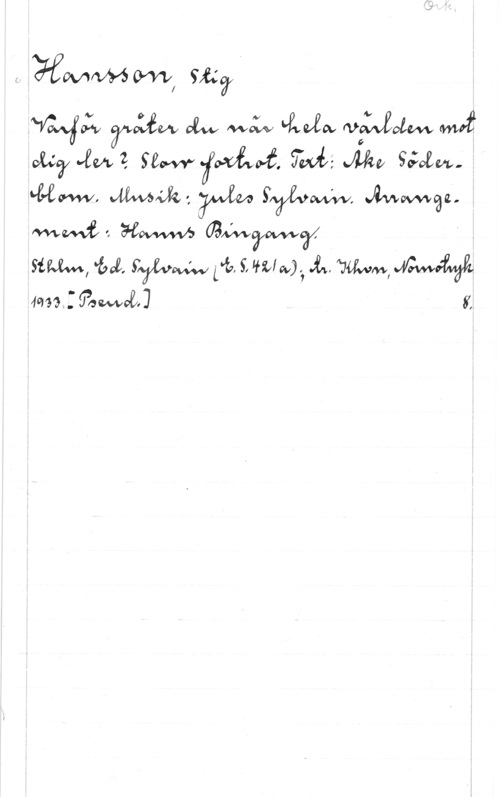 Ork.
Hansson, Stig
Varför gråter du när hela världen mot
dig ler? Slow foxtrot. Text: Åke Söder-
blom. Musik: Jules Sylvain. Arrange-
ment: Hanns Bingang.
Sthlm, Ed. Sylvain (E.S. 421a); tr. Khvn, Nornotryk
1933. [Pseud.] 8.